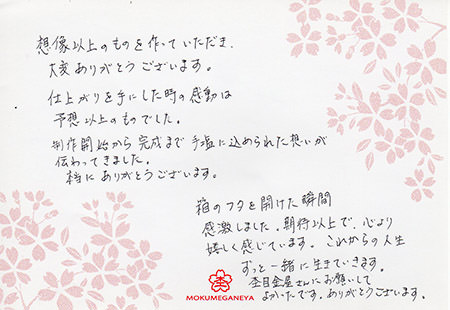 想像以上のものを作っていただき、
大変ありがとうございます。
仕上がりを手にした時の感動は
予想以上のものでした。
制作開始から完成まで手塩に込められた想いが
伝わってきました。
本当にありがとうございます。
箱のフタを開けた瞬間
感激しました。期待以上で、心より
嬉しく感じています。これからの人生
ずっと一緒に生きていきます。
杢目金屋さんにお願いして
よかったです。ありがとうございます。
杢
MOKUMEGANEYA